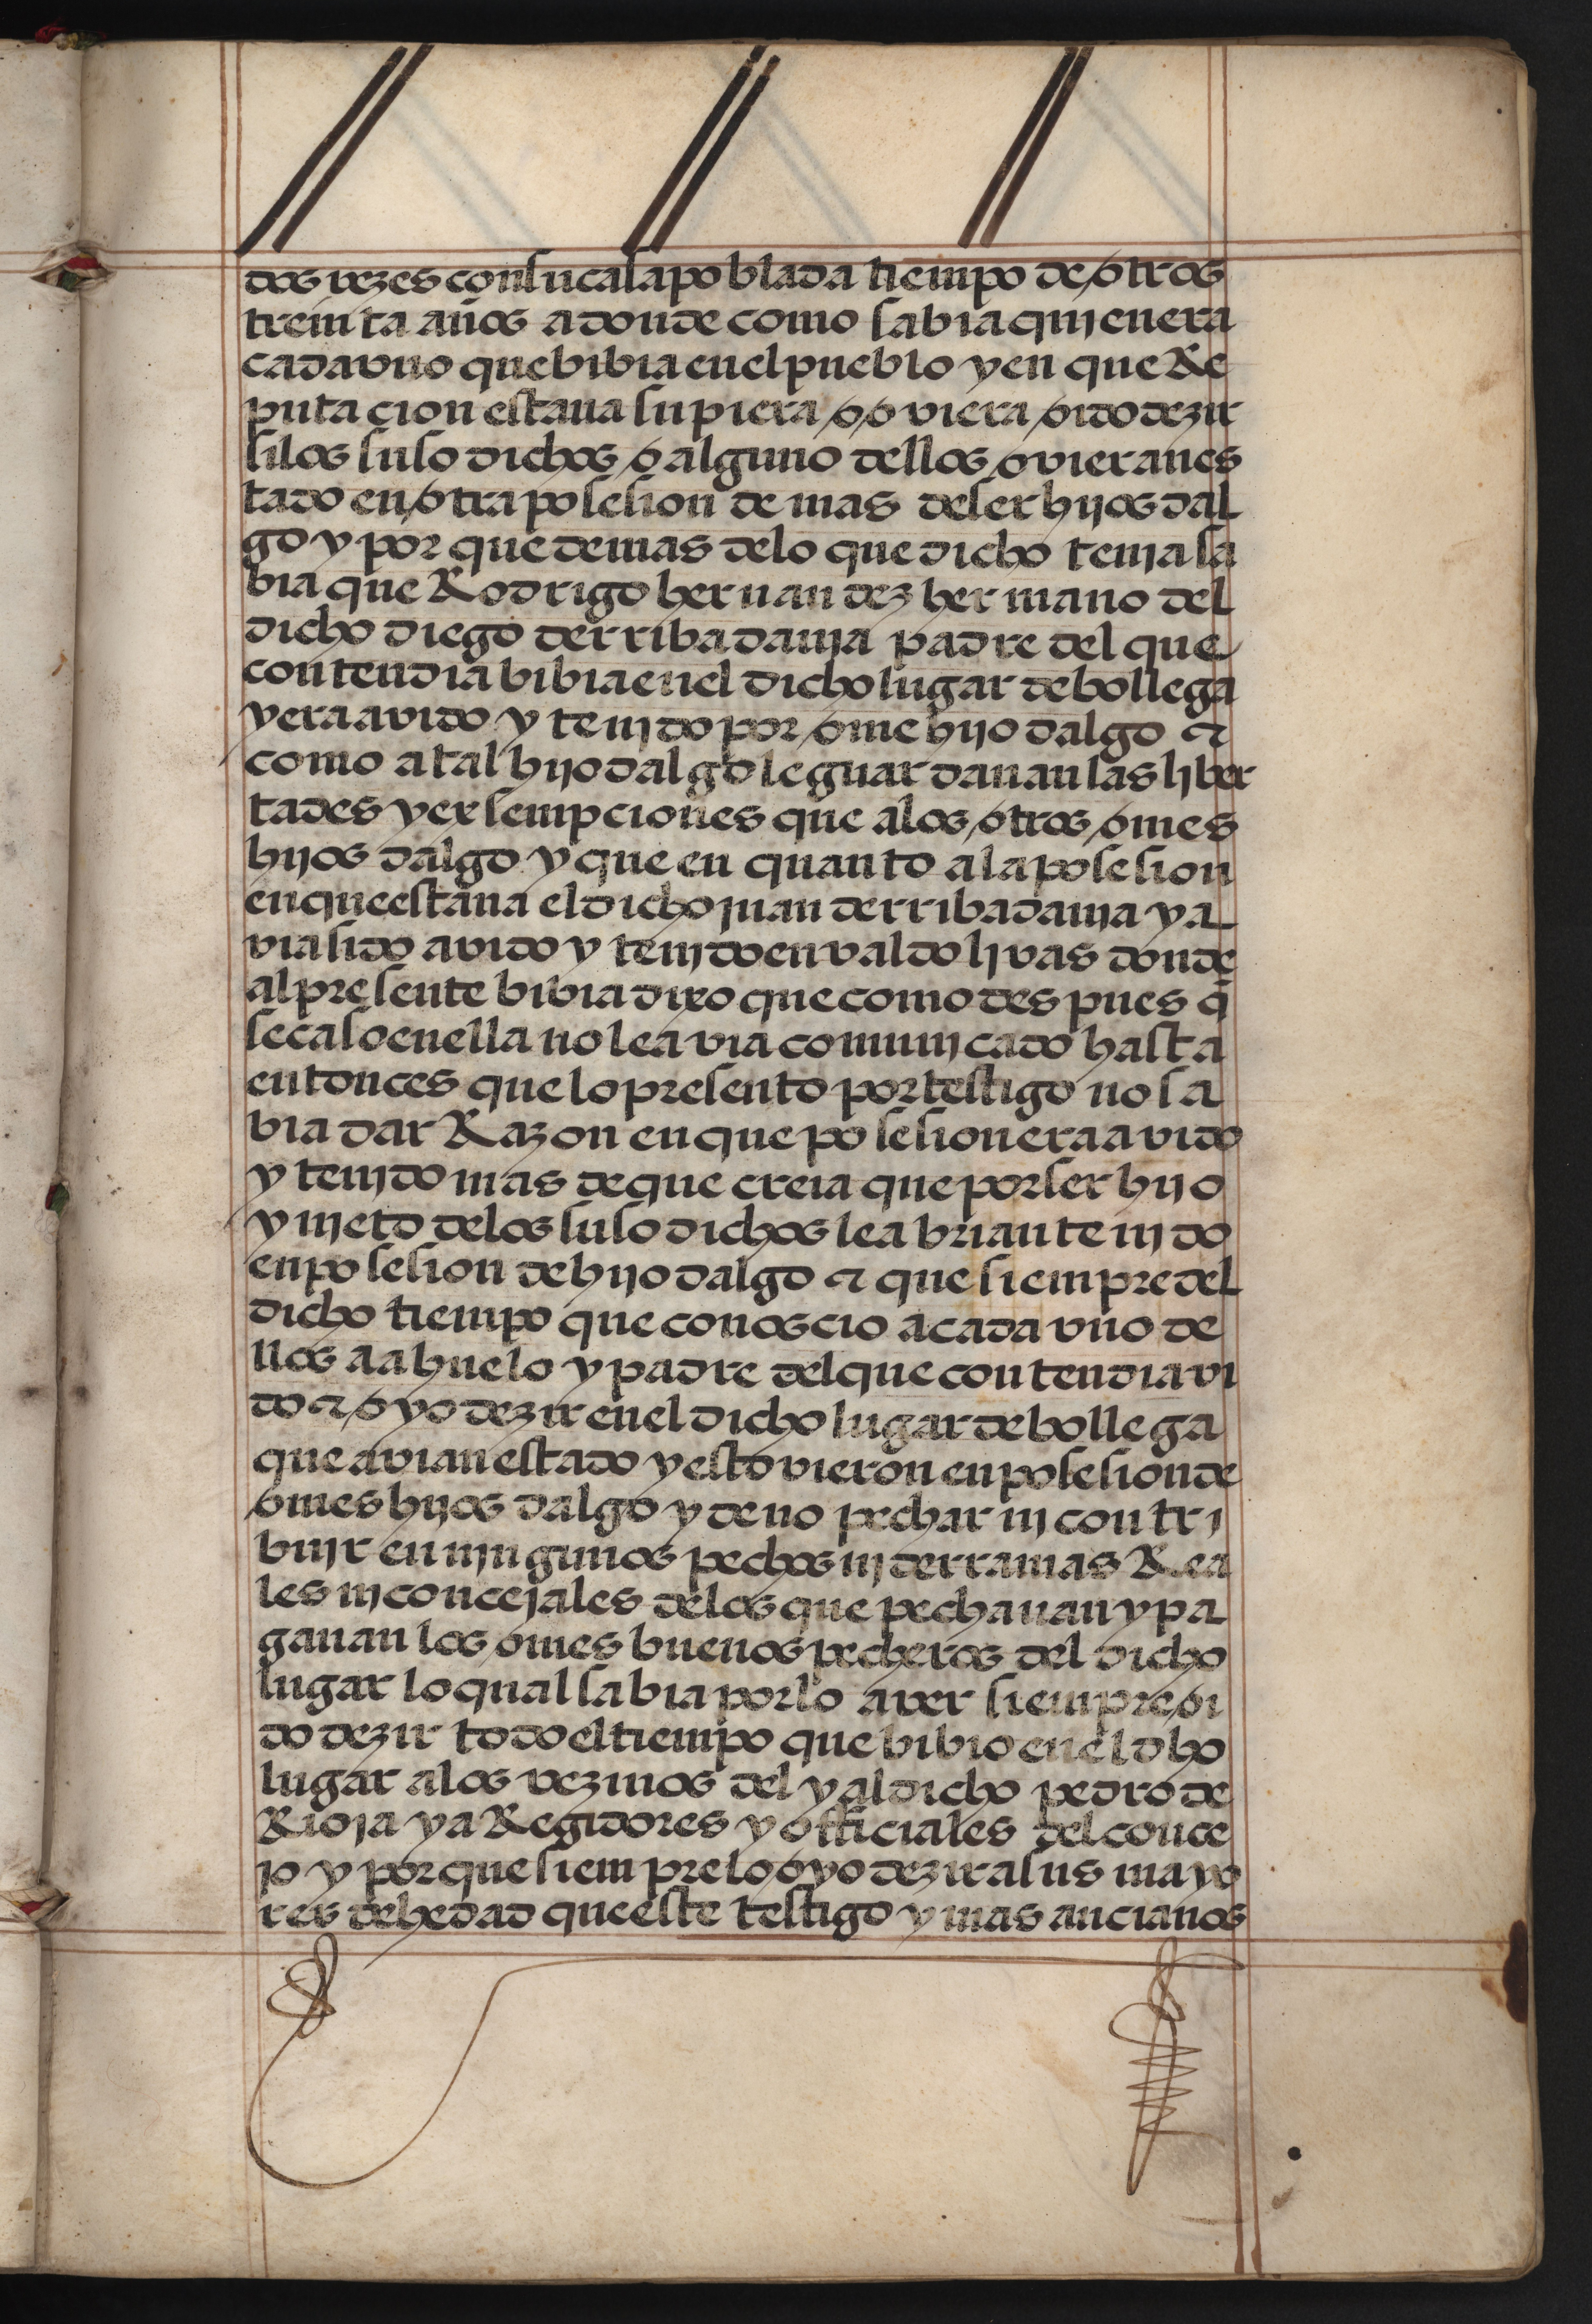 dos vezes con su casa poblada tiempo de otros
treinta años a donde como sabia quien era
cada vno que bibia en el pueblo y en que Re
putacion estaua supiera o oviera oido dezir
si los suso dichos o alguno dellos ovieran es
tado en otra posesion de mas de ser hijos dal
go y por que demas de lo que dicho tenja sa
bia que Rodrigo hernandez hermano del
dicho diego de rribadauja padre del que
contendia bibia en el dicho lugar de bollega
y era avido y tenjdo por ome hijo dalgo &
como a tal hijo dalgo le guardauan las liber
tades y exsempciones que a los otros omes
hijos dalgo y que en quanto a la posesion
en que estaua el dicho juan de rribadauja y a
via sido avido y tenjdo en valdoliuas donde
al presente bibia dixo que como despues q̃
se caso en ella no le avia comunjcado hasta
entonces que lo presento por testigo no sa
bia dar Razon en que posesion era avido
y tenjdo mas de que creia que por ser hijo
y njeto de los suso dichos le abrian tenjdo
en posesion de hijo dalgo & que siempre del
dicho tiempo que conoscio a cada vno de
llos a abuelo y padre del que contendia vi
do & oyo dezir en el dicho lugar de bollega
que avian estado y estovieron en posesion de
omes hijos dalgo y de no pechar nj contri
buir en njngunos pechos nj derramas Rea
les nj concejales de los que pechauan y pa
gauan los omes buenos pecheros del dicho
lugar lo qual sabia por lo aver siempre oi
do dezir todo el tiempo que bibio en el dho
lugar a los vezinos del y al dicho pedro de
Rioja y a Regidores y officiales del conce
jo y por que siempre lo oyo dezir a sus mayo
res de hedad que este testigo y mas ancianos